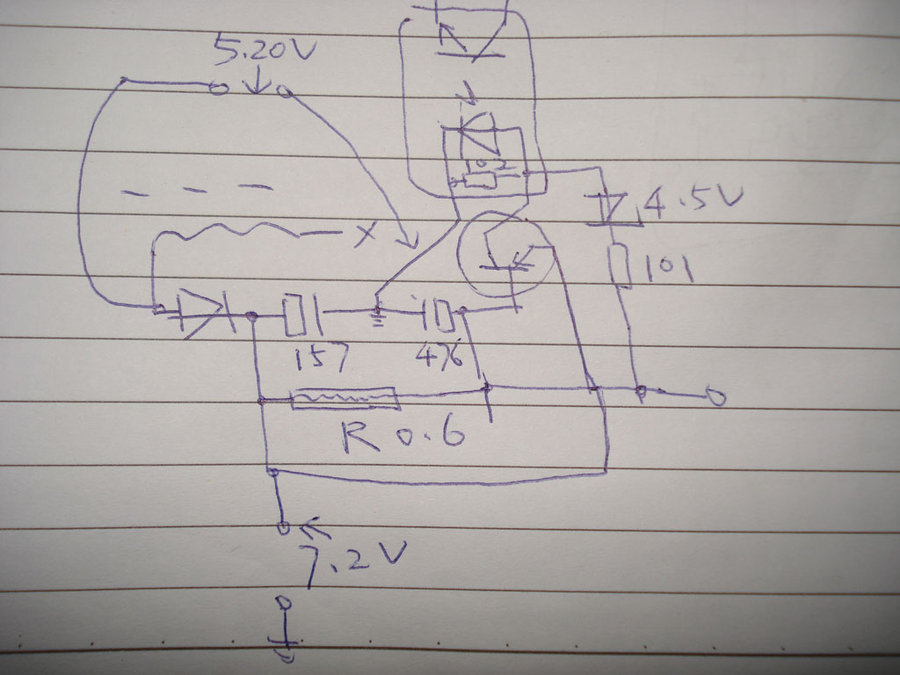 5.20V
102
4.5V
X
101
157
476
R 0.6
7.2V